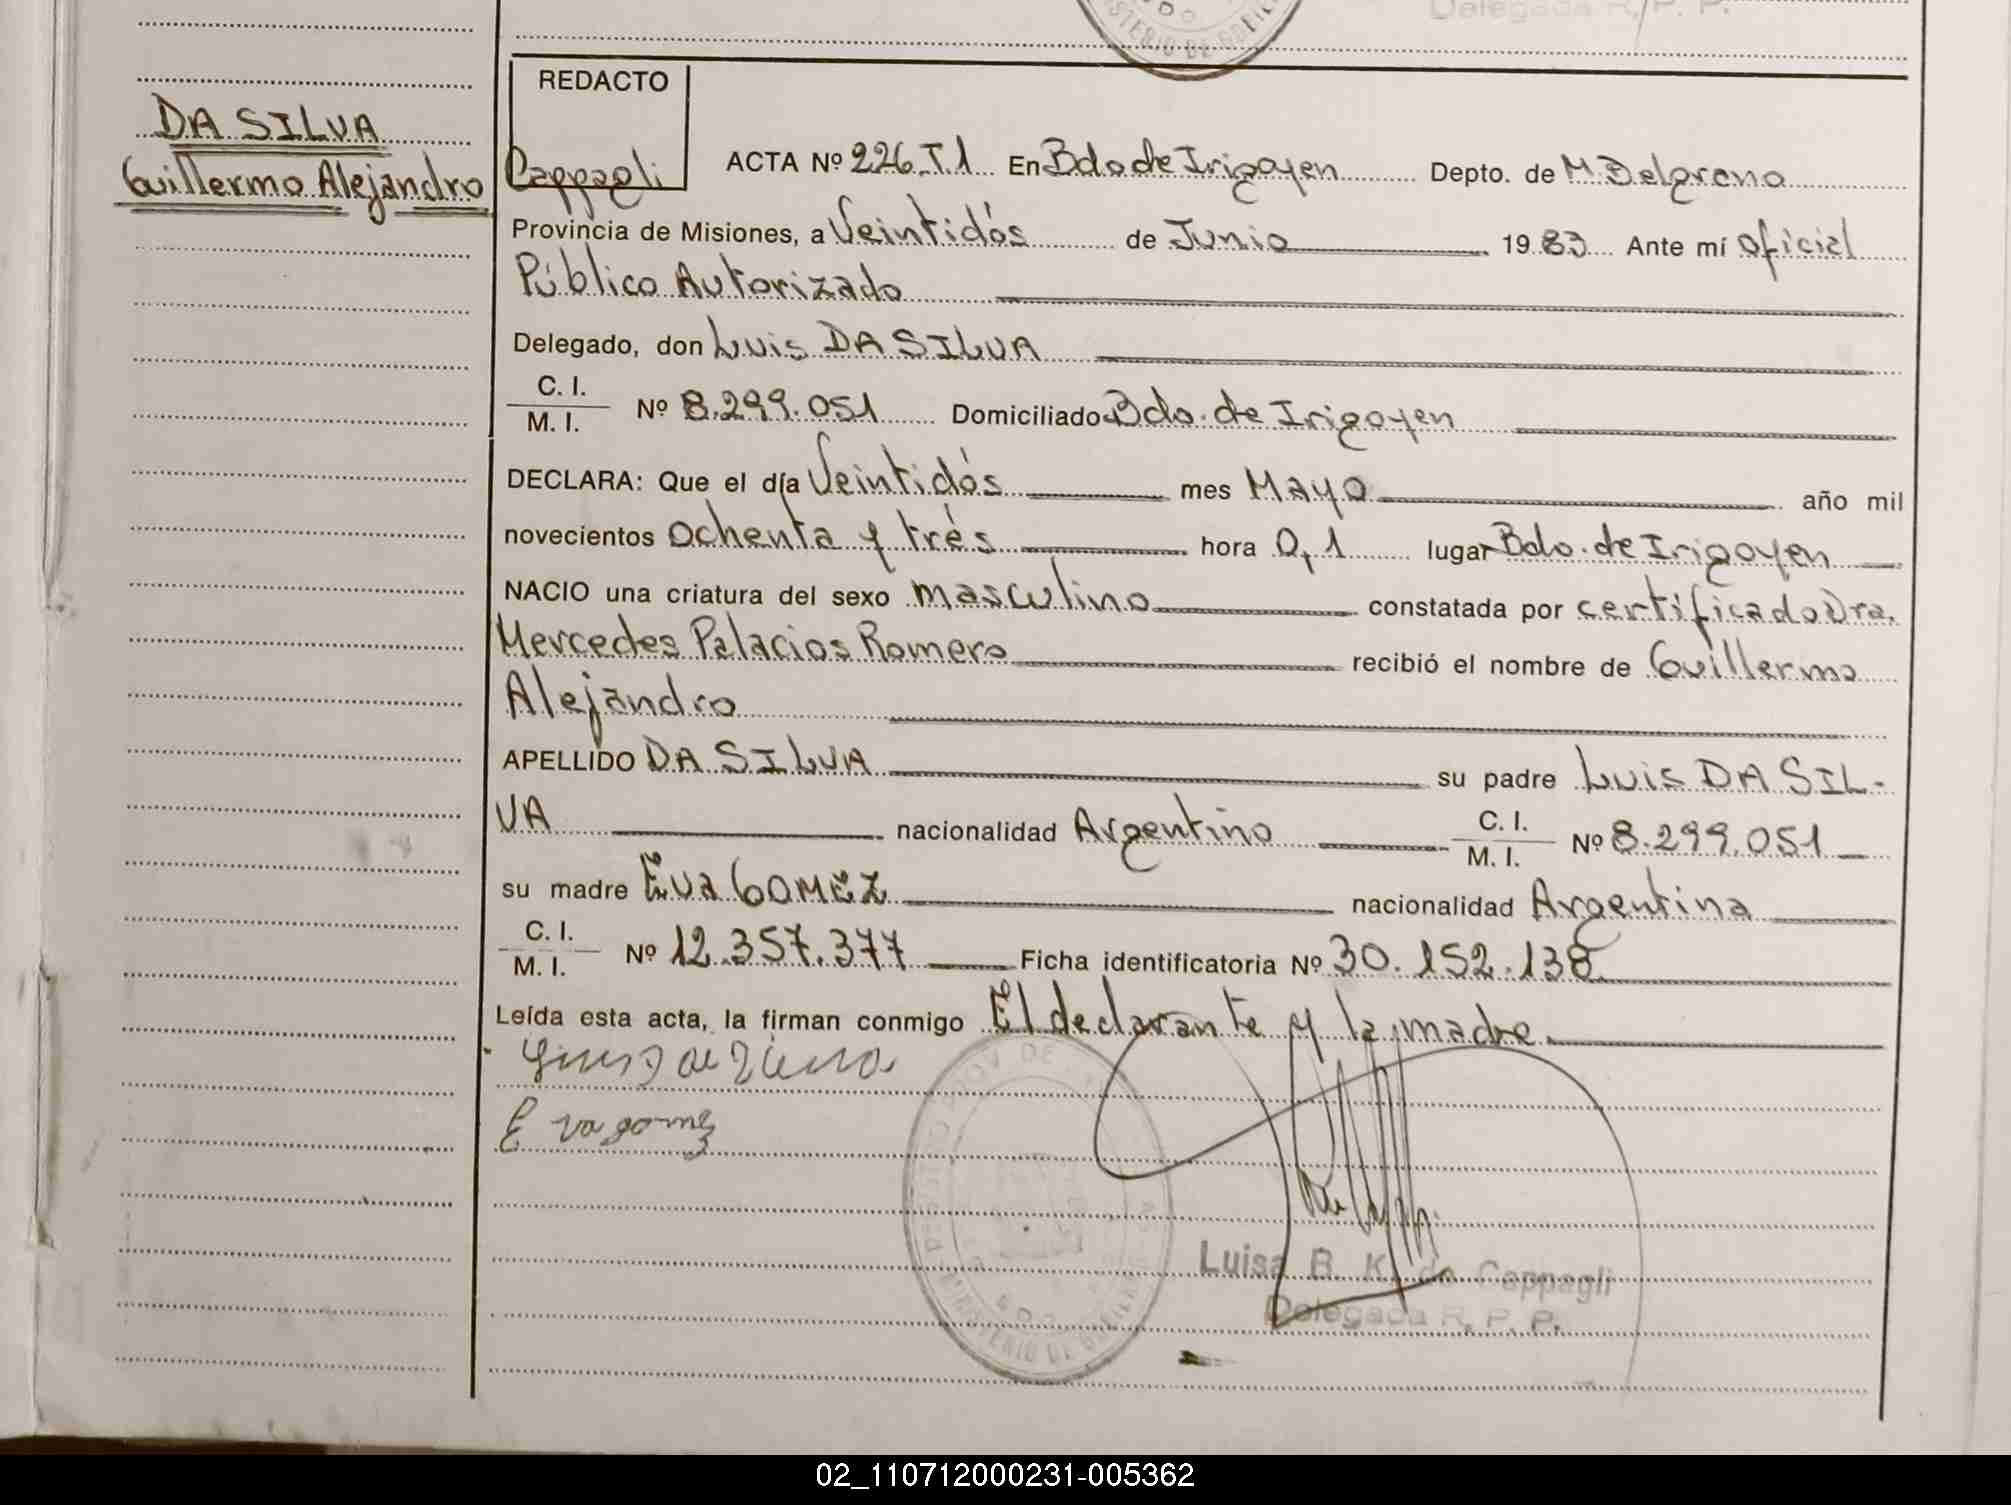 Delegada R. P. P.
MINISTERIO DE GOBIERNO
REDACTO
DA SILVA
Guillermo Alejandro
Cappagli
ACTA Nº 226.T.1 En Bdo de Irigoyen Depto. de M Belgrano
Provincia de Misiones, a Veintidós de Junio 1983 Ante mí oficial
Público Autorizado
Delegado, don Luis DA SILVA
C. I.
M. I. Nº 8.299.051 Domiciliado Bdo. de Irigoyen
DECLARA: Que el día Veintidós mes Mayo año mil
novecientos ochenta y trés hora 0,1 lugar Bdo. de Irigoyen
NACIO una criatura del sexo masculino constatada por certificado Dra.
Mercedes Palacios Romero recibió el nombre de Guillermo
Alejandro
APELLIDO DA SILVA su padre Luis DA SIL-
VA nacionalidad Argentino C. I. M. I. Nº 8.299.051
su madre Eva GOMEZ nacionalidad Argentina
C. I.
M. I. Nº 12.357.377 Ficha identificatoria Nº 30.152.138
Leída esta acta, la firman conmigo El declarante y la madre
Eva gomez
Luisa B. K. de Cappagli
Delegada R. P. P.
MINISTERIO DE GOBIERNO
02_110712000231-005362